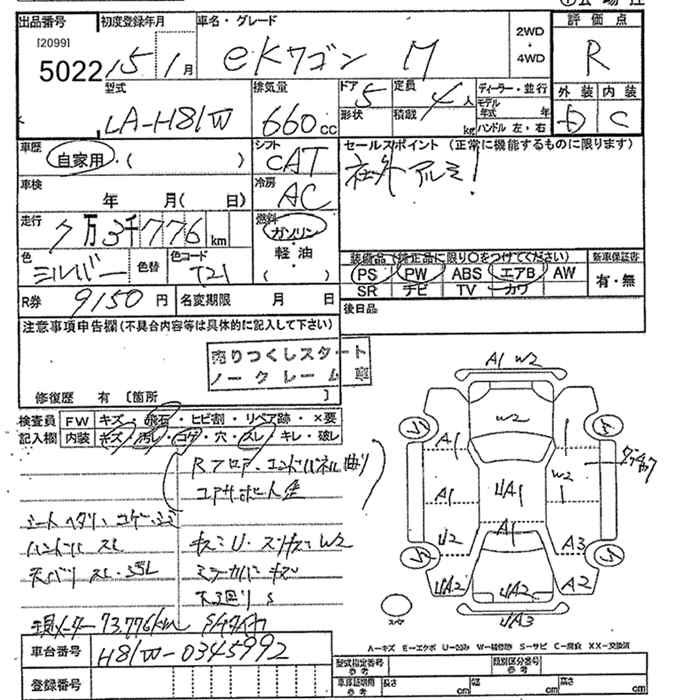 出品番号 初度登録年月 車名・グレード 2WD・4WD 評価点
[2099]
5022 15 1月 eKワゴン M R
型式 排気量 ドア 定員 ディーラー・並行 外装 内装
LA-H81W 660cc 5 4人 モデル年式 年 D C
形状 積載 kg ハンドル 左・右
車歴 自家用・( ) シフト CAT セールスポイント (正常に機能するものに限ります)
社外アルミ!
車検 年 月( 日) 冷房 AC
走行 7万3千776km 燃料 ガソリン・軽油( )
色 シルバー 色替 色コード T21
装備品(純正品に限り○をつけてください) 新車保証書
PS PW ABS エアB AW 有・無
SR ナビ TV カワ
R券 9150円 名変期限 月 日 後日品
注意事項申告欄(不具合内容等は具体的に記入して下さい)
売りつくしスタート
ノークレーム車
修復歴 有 [箇所 ]
検査員記入欄 FW キズ・飛石・ヒビ割・リペア跡・×要
内装 キズ・汚レ・コゲ・穴・スレ・キレ・破レ
Rフロア・エンドパネル曲り
コアサポート歪
シートヘタリ・コゲ・シミ
ハンドル スレ キズミU・スリキズミW2
天バリ スレ・汚レ
下廻りS
現メーター73,776km
A1 W2
W2
A1
W2
A1 UA1
A1
U2 A3
UA2 UA2 A2
UA3
スペア
A-キズ E-エクボ U-凹み W-補修跡 S-サビ C-腐食 XX-交換済
車台番号 H81W-0345992
登録番号
型式指定番号 参考 類別区分番号 参考
車庫証明用 参考 長さ cm 幅 cm 高さ cm